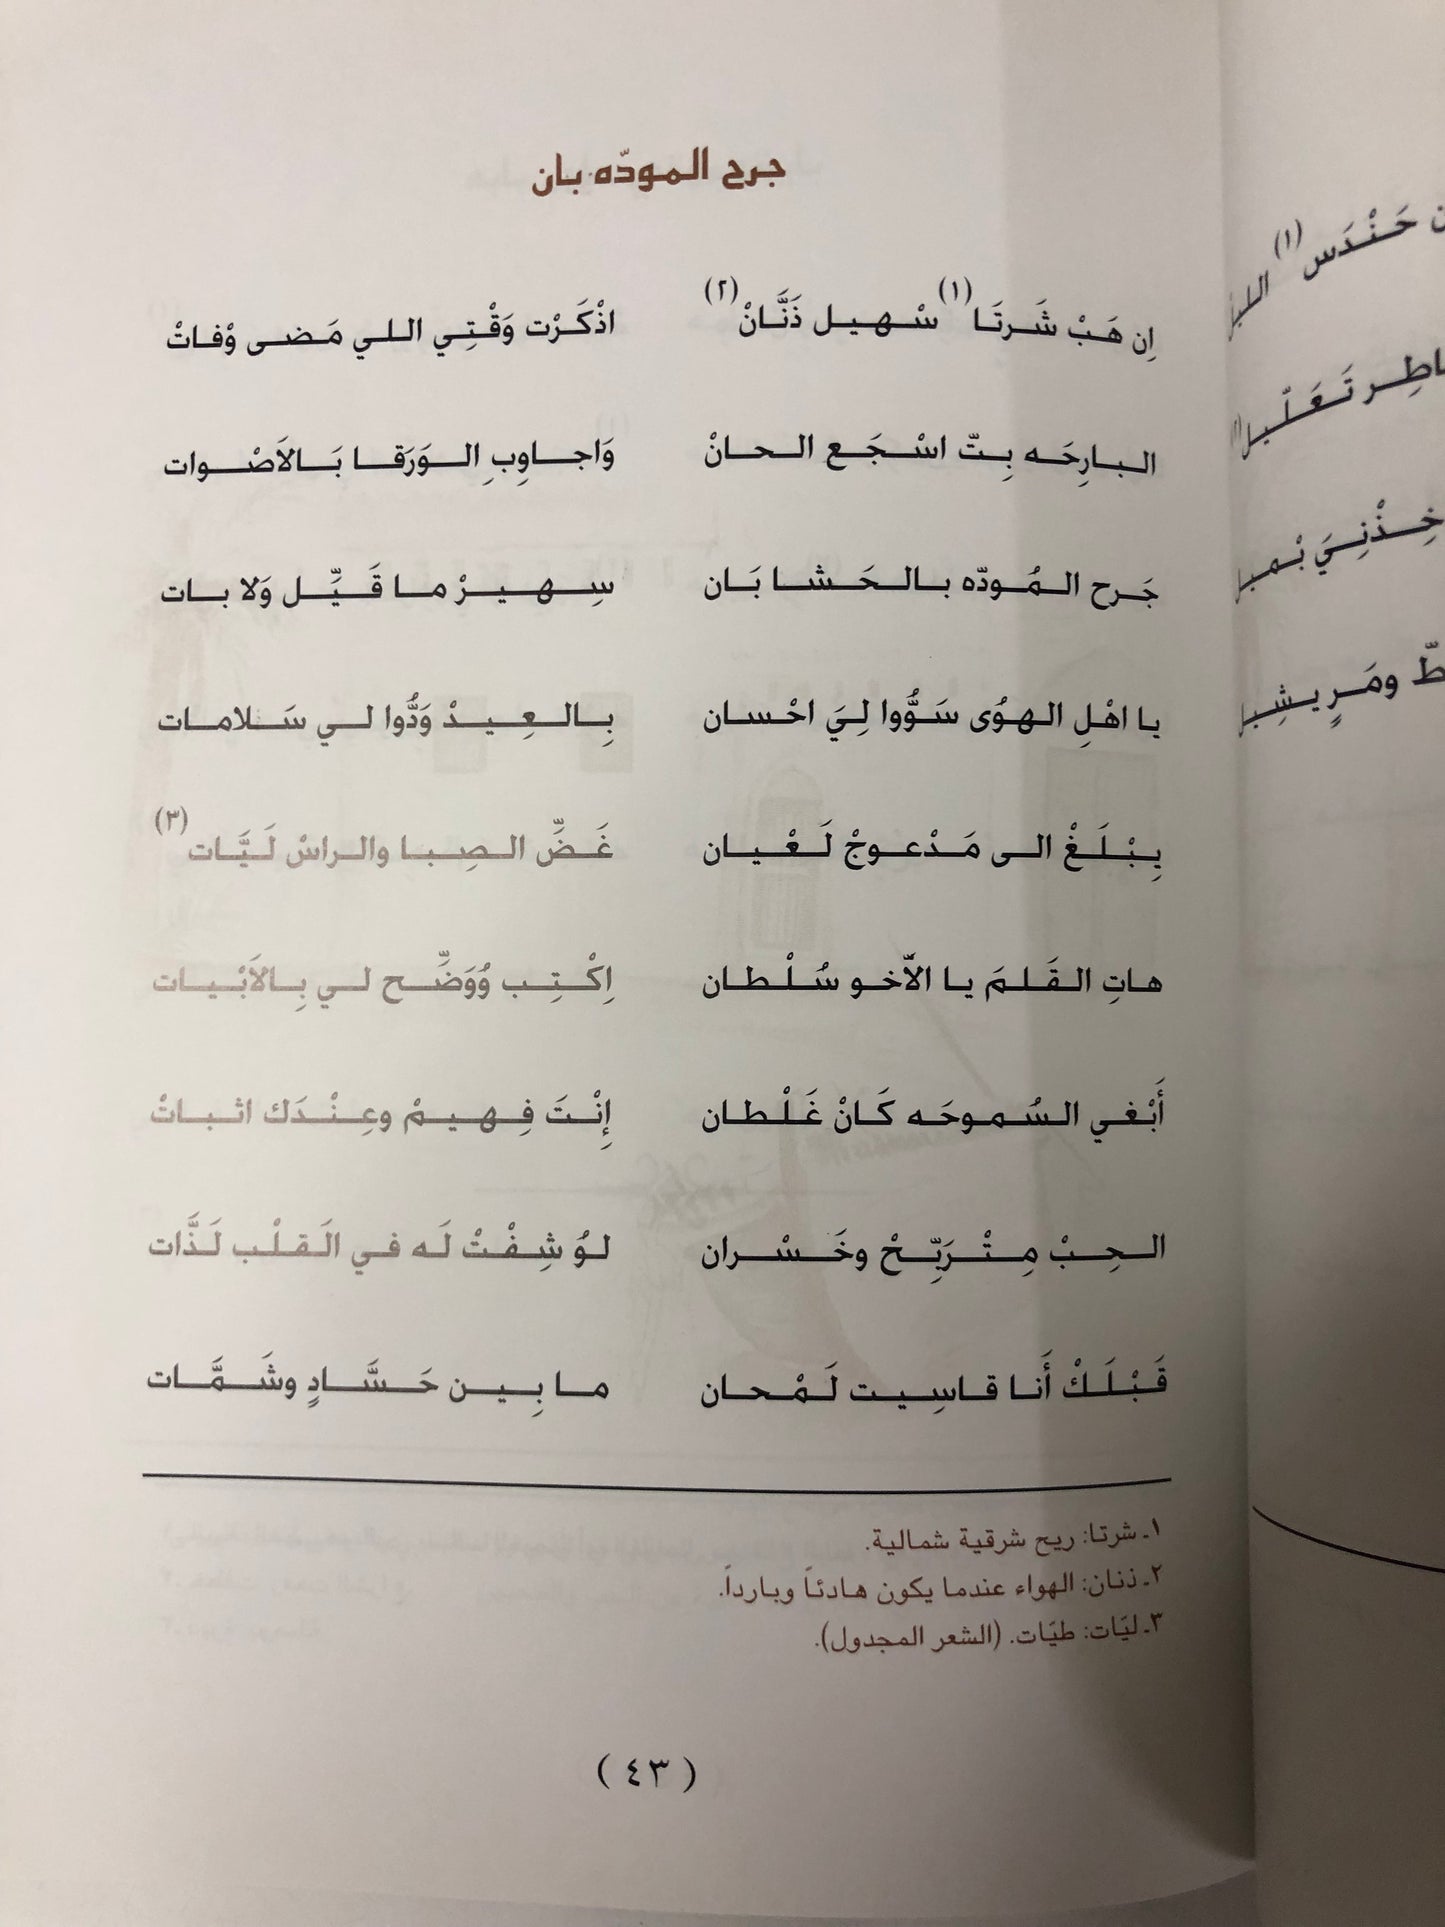 جرح المودّه بان
اِن هَبْ شَرتَا (١) سْهيل ذَنَّانْ (٢) اذْكَرْت وَقْتِي اللي مَضى وْفاتْ
البارِحَه بِتّ اسْجَع الحانْ وَاجاوِبِ الوَرَقا بَالاَصْوات
جَرح المُودّه بالحَشا بَان سِهيرْ ما قَيِّل وَلا بات
يا اهْلِ الهوُى سَوُّوا لِيَ احْسان بِالعِيدْ وَدُّوا لي سَلامات
يِبْلَغْ الى مَدْعوجْ لَعْيان غَضِّ الصِبا والراسْ لَيَّات (٣)
هاتِ القَلمَ يا الآخو سُلْطان اِكْتِب وُوَضِّح لي بِالاَبْيات
أَبْغي السُموحَه كَانْ غَلْطان إنْتَ فِهيمْ وعِنْدَك اثباتْ
الحِبْ مِتْرَبِّحْ وخَسْران لوُ شِفْتْ لَه في الَقلْب لَذَّات
قَبْلَكْ أَنا قاسِيت لَمْحان ما بِين حَسَّادٍ وشَمَّات
١ـ شرتا: ريح شرقية شمالية.
٢ـ ذنان: الهواء عندما يكون هادئاً وبارداً.
٣ـ ليَات: طيَات. (الشعر المجدول).
( ٤٣ )
حَنْدَس (١) الليل
تَعَلّيل
خِذْنِيَ بْميل
ومَرٍ يشِيل